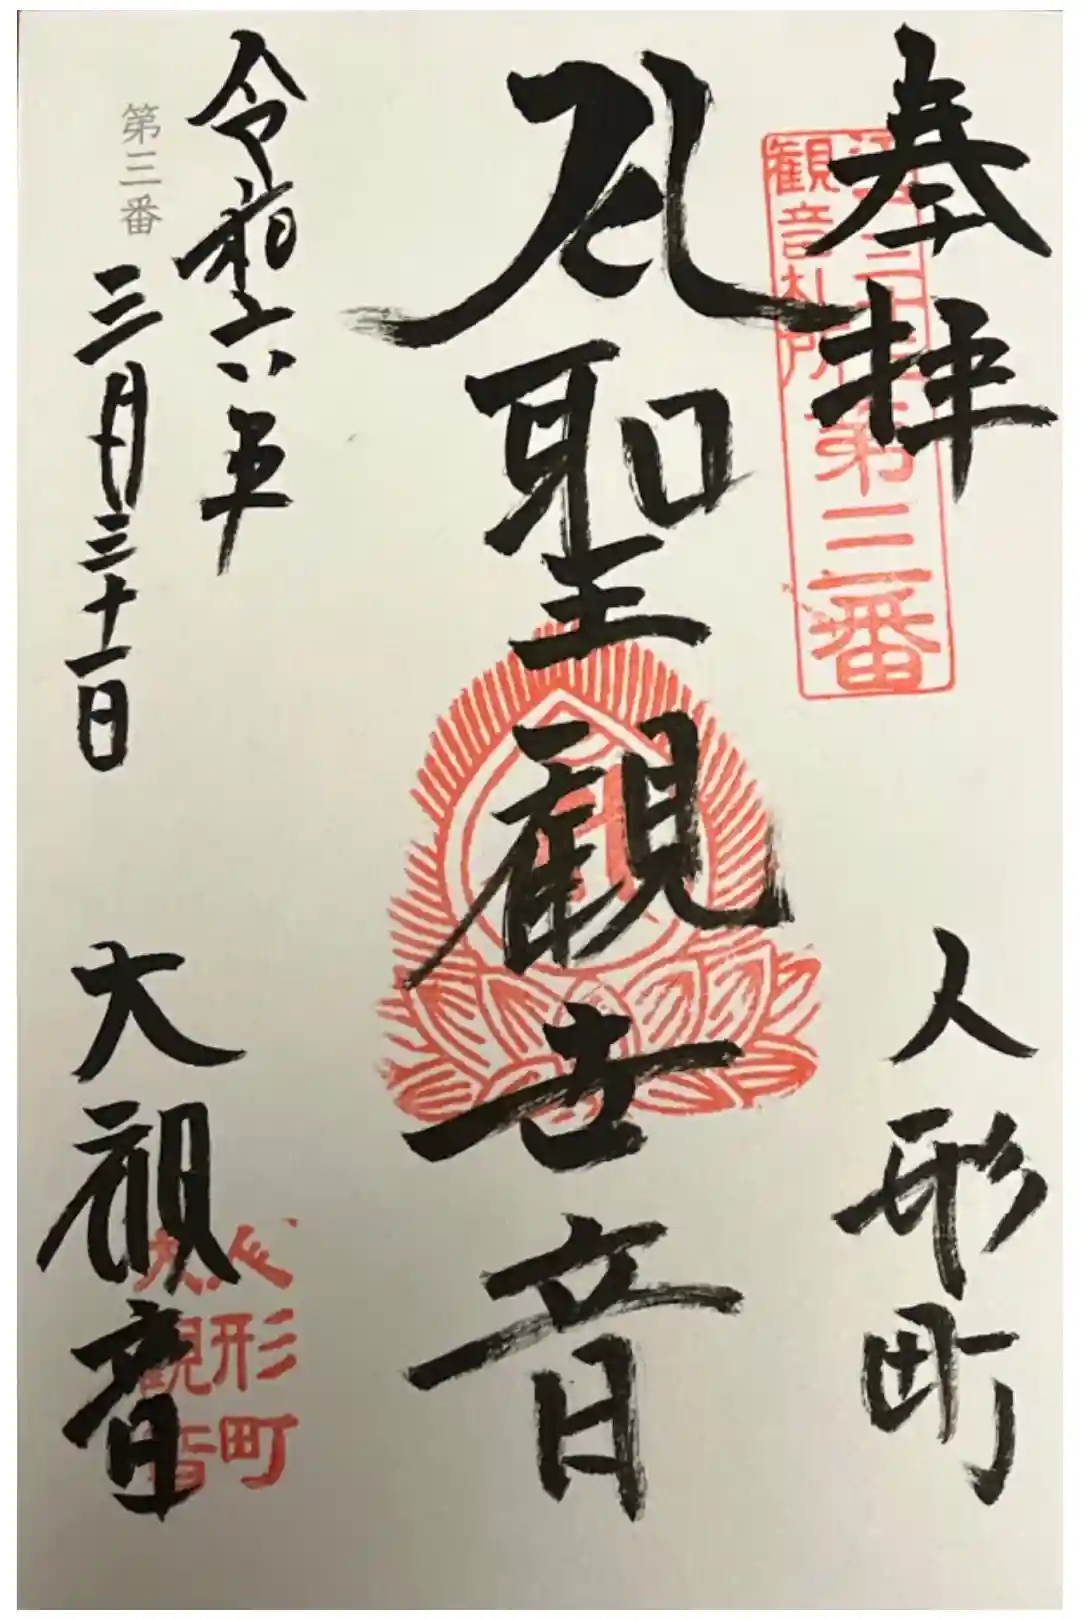 奉拝
人形町
聖観世音
令和六年
三月三十一日
大観音
第三番
江戸三十三
観音札所
第三番
人形町
大観音